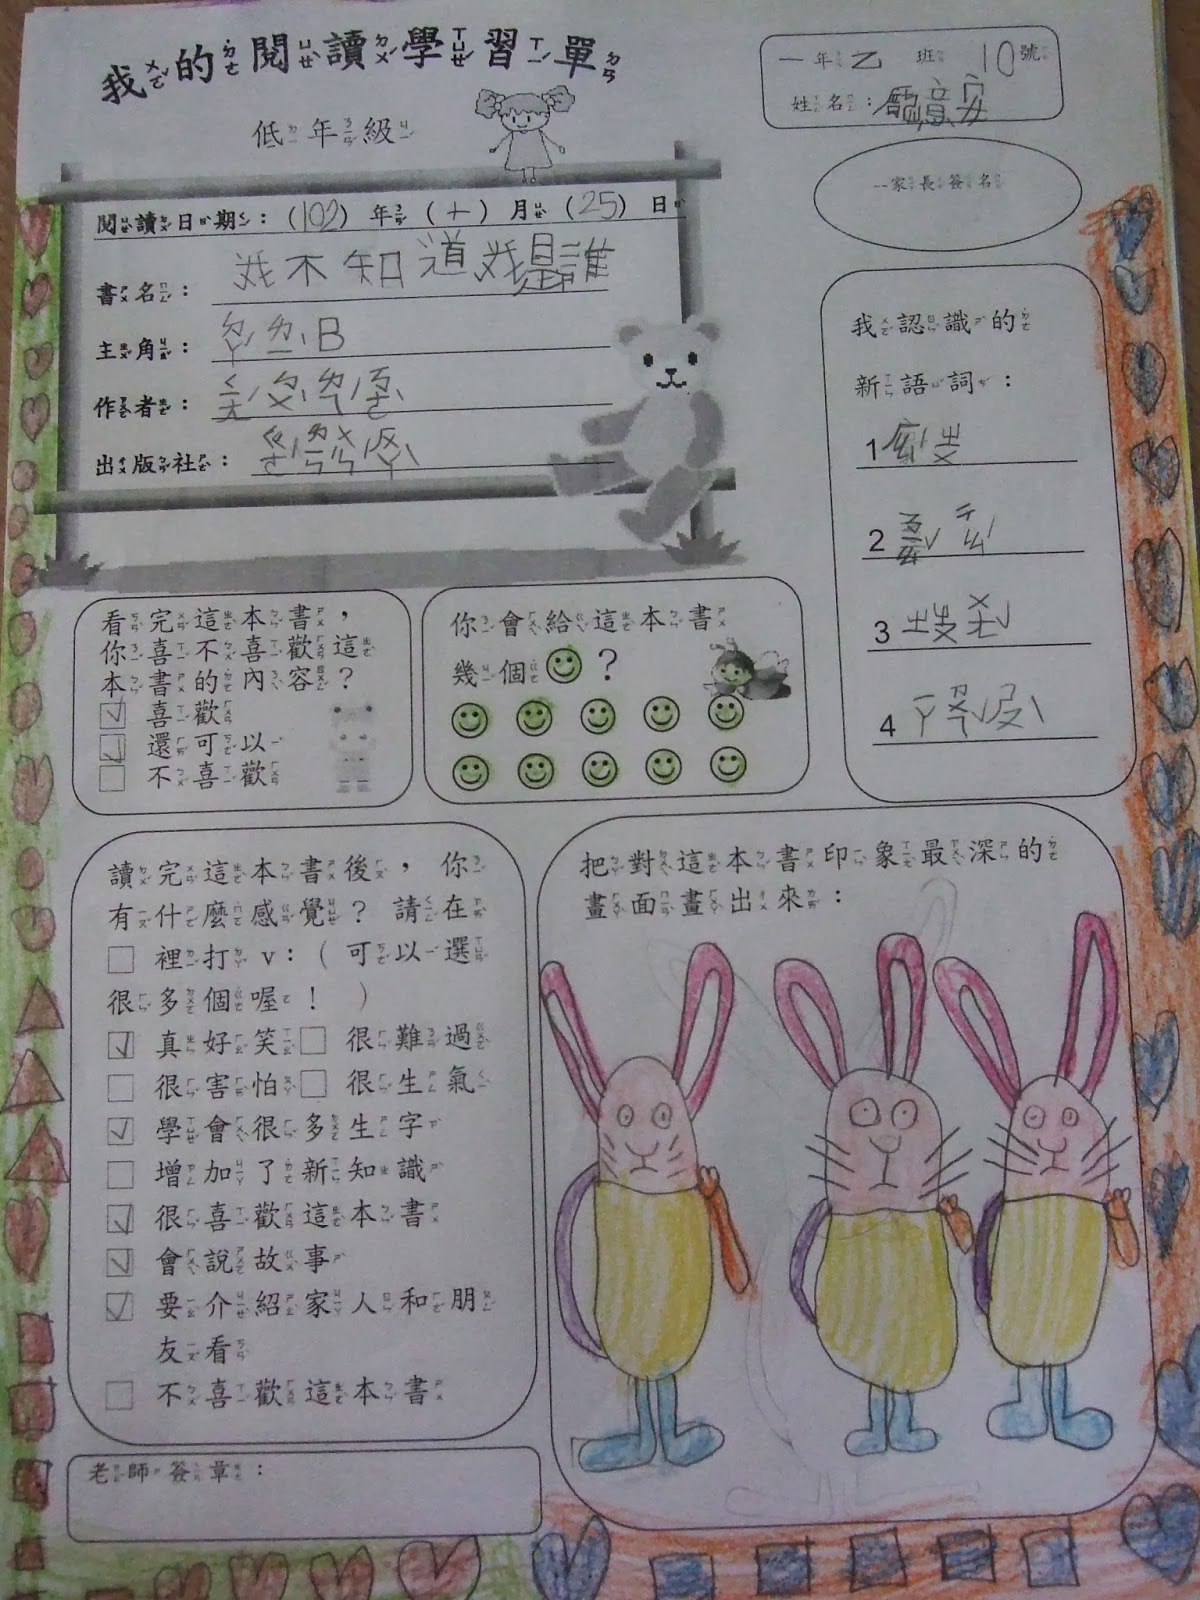 我的閱讀學習單
低年級
一年乙班10號
姓名：意安
家長簽名
閱讀日期：(102)年(十)月(25)日
書名：我不知道我是誰
主角：ㄉㄚˊㄌㄧˋB
作者：
出版社：
我認識的
新語詞：
1
2
3
4
看完這本書，
你喜不喜歡這
本書的內容？
喜歡
還可以
不喜歡
你會給這本書
幾個？
讀完這本書後，你
有什麼感覺？請在
□裡打v：(可以選
很多個喔！)
真好笑□很難過
很害怕□很生氣
學會很多生字
增加了新知識
很喜歡這本書
會說故事
要介紹家人和朋
友看
不喜歡這本書
把對這本書印象最深的
畫面畫出來：
老師簽章：